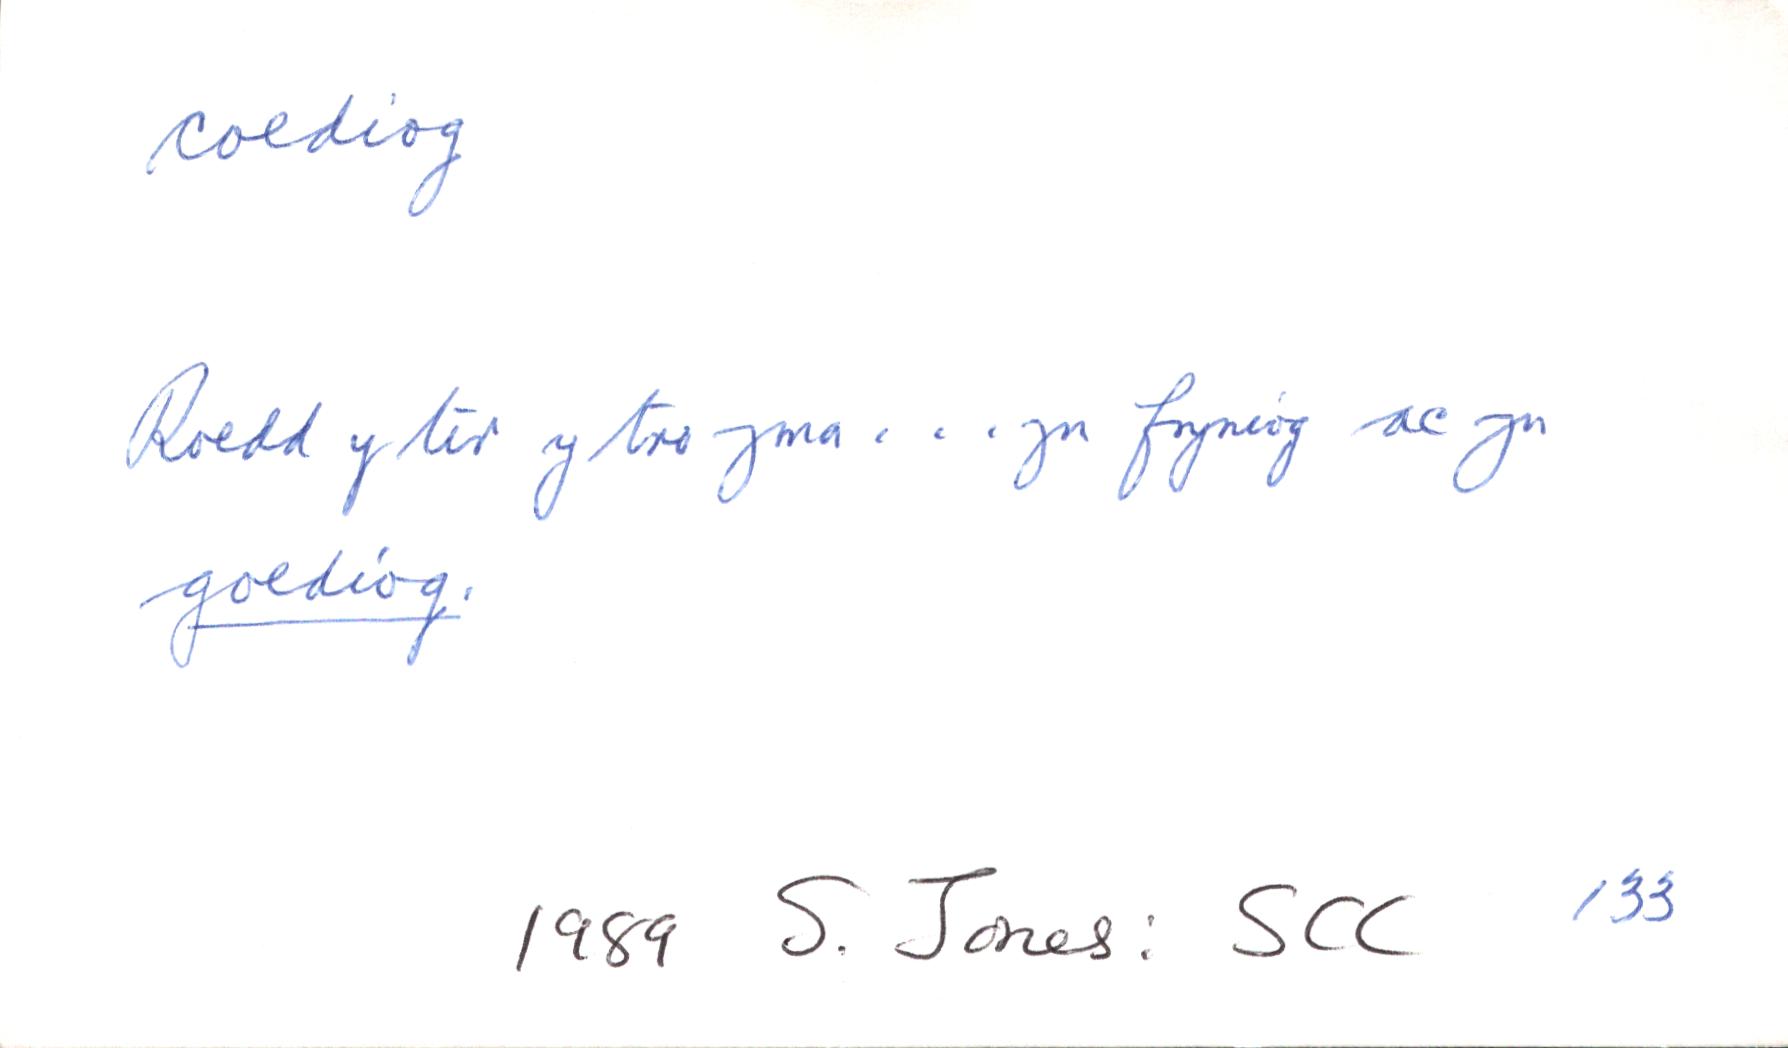 coediog
Roedd y tir y tro yma . . . yn fryniog ac yn
goediog.
1989 S. Jones: SCC 133